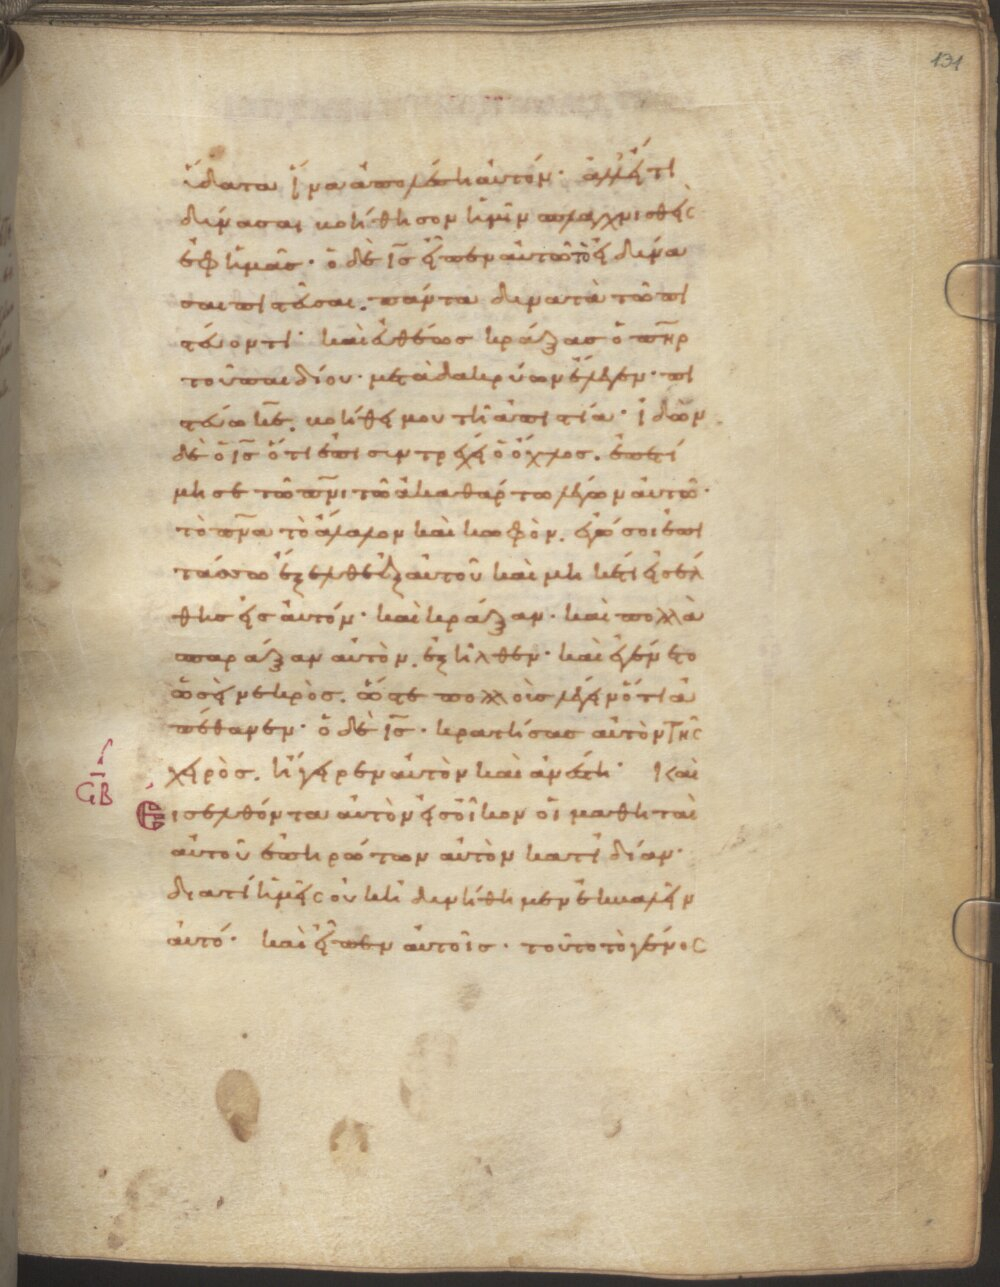 131
ὕδατα ἵνα ἀπολέση αὐτόν· ἀλλ' εἴ τι
δύνασαι, βοήθησον ἡμῖν σπλαγχνισθεὶς
ἐφ ἡμᾶς· ὁ δὲ ις εἶπεν αὐτῶ τὸ εἰ δύνα
σαι πιστεύσαι. πάντα δυνατὰ τῶ πι
στεύοντι· καὶ εὐθέως κράξας ὁ πηρ
τοῦ παιδίου· μετὰ δακρύων ἔλεγεν· πι
στεύω κε. βοήθει μου τῆ ἀπιστία· ἰδὼν
δὲ ὁ ις ὅτι ἐπισυντρέχει ὁ ὄχλος. ἐπετί
μησε τῶ πνι τῶ ἀκαθάρτω λέγων αὐτῶ·
τὸ πνα τὸ ἄλαλον καὶ κωφὸν. ἐγώ σοι ἐπι
τάσσω ἔξελθε ἐξ αὐτοῦ καὶ μηκέτι εἰσέλ
θης εἰς αὐτόν· καὶ κράξαν· καὶ πολλὰ
σπαράξαν αὐτὸν. ἐξῆλθεν· καὶ ἐγένετο
ὡσεὶ νεκρὸς. ὥστε πολλοὺς λέγειν ὅτι ἀ
πέθανεν· ὁ δὲ ις· κρατήσας αὐτὸν τῆς
χειρὸς. ἤγειρεν αὐτὸν καὶ ἀνέστη· Καὶ
Ϛβ
Εισελθόντα αὐτὸν εἰς οἶκον οἱ μαθηταὶ
αὐτοῦ ἐπηρώτων αὐτὸν κατ' ἰδίαν·
διατί ἡμεῖς οὐκ ἠδυνήθημεν ἐκβαλεῖν
αὐτό· καὶ εἶπεν αὐτοῖς· τοῦτο τὸ γένος